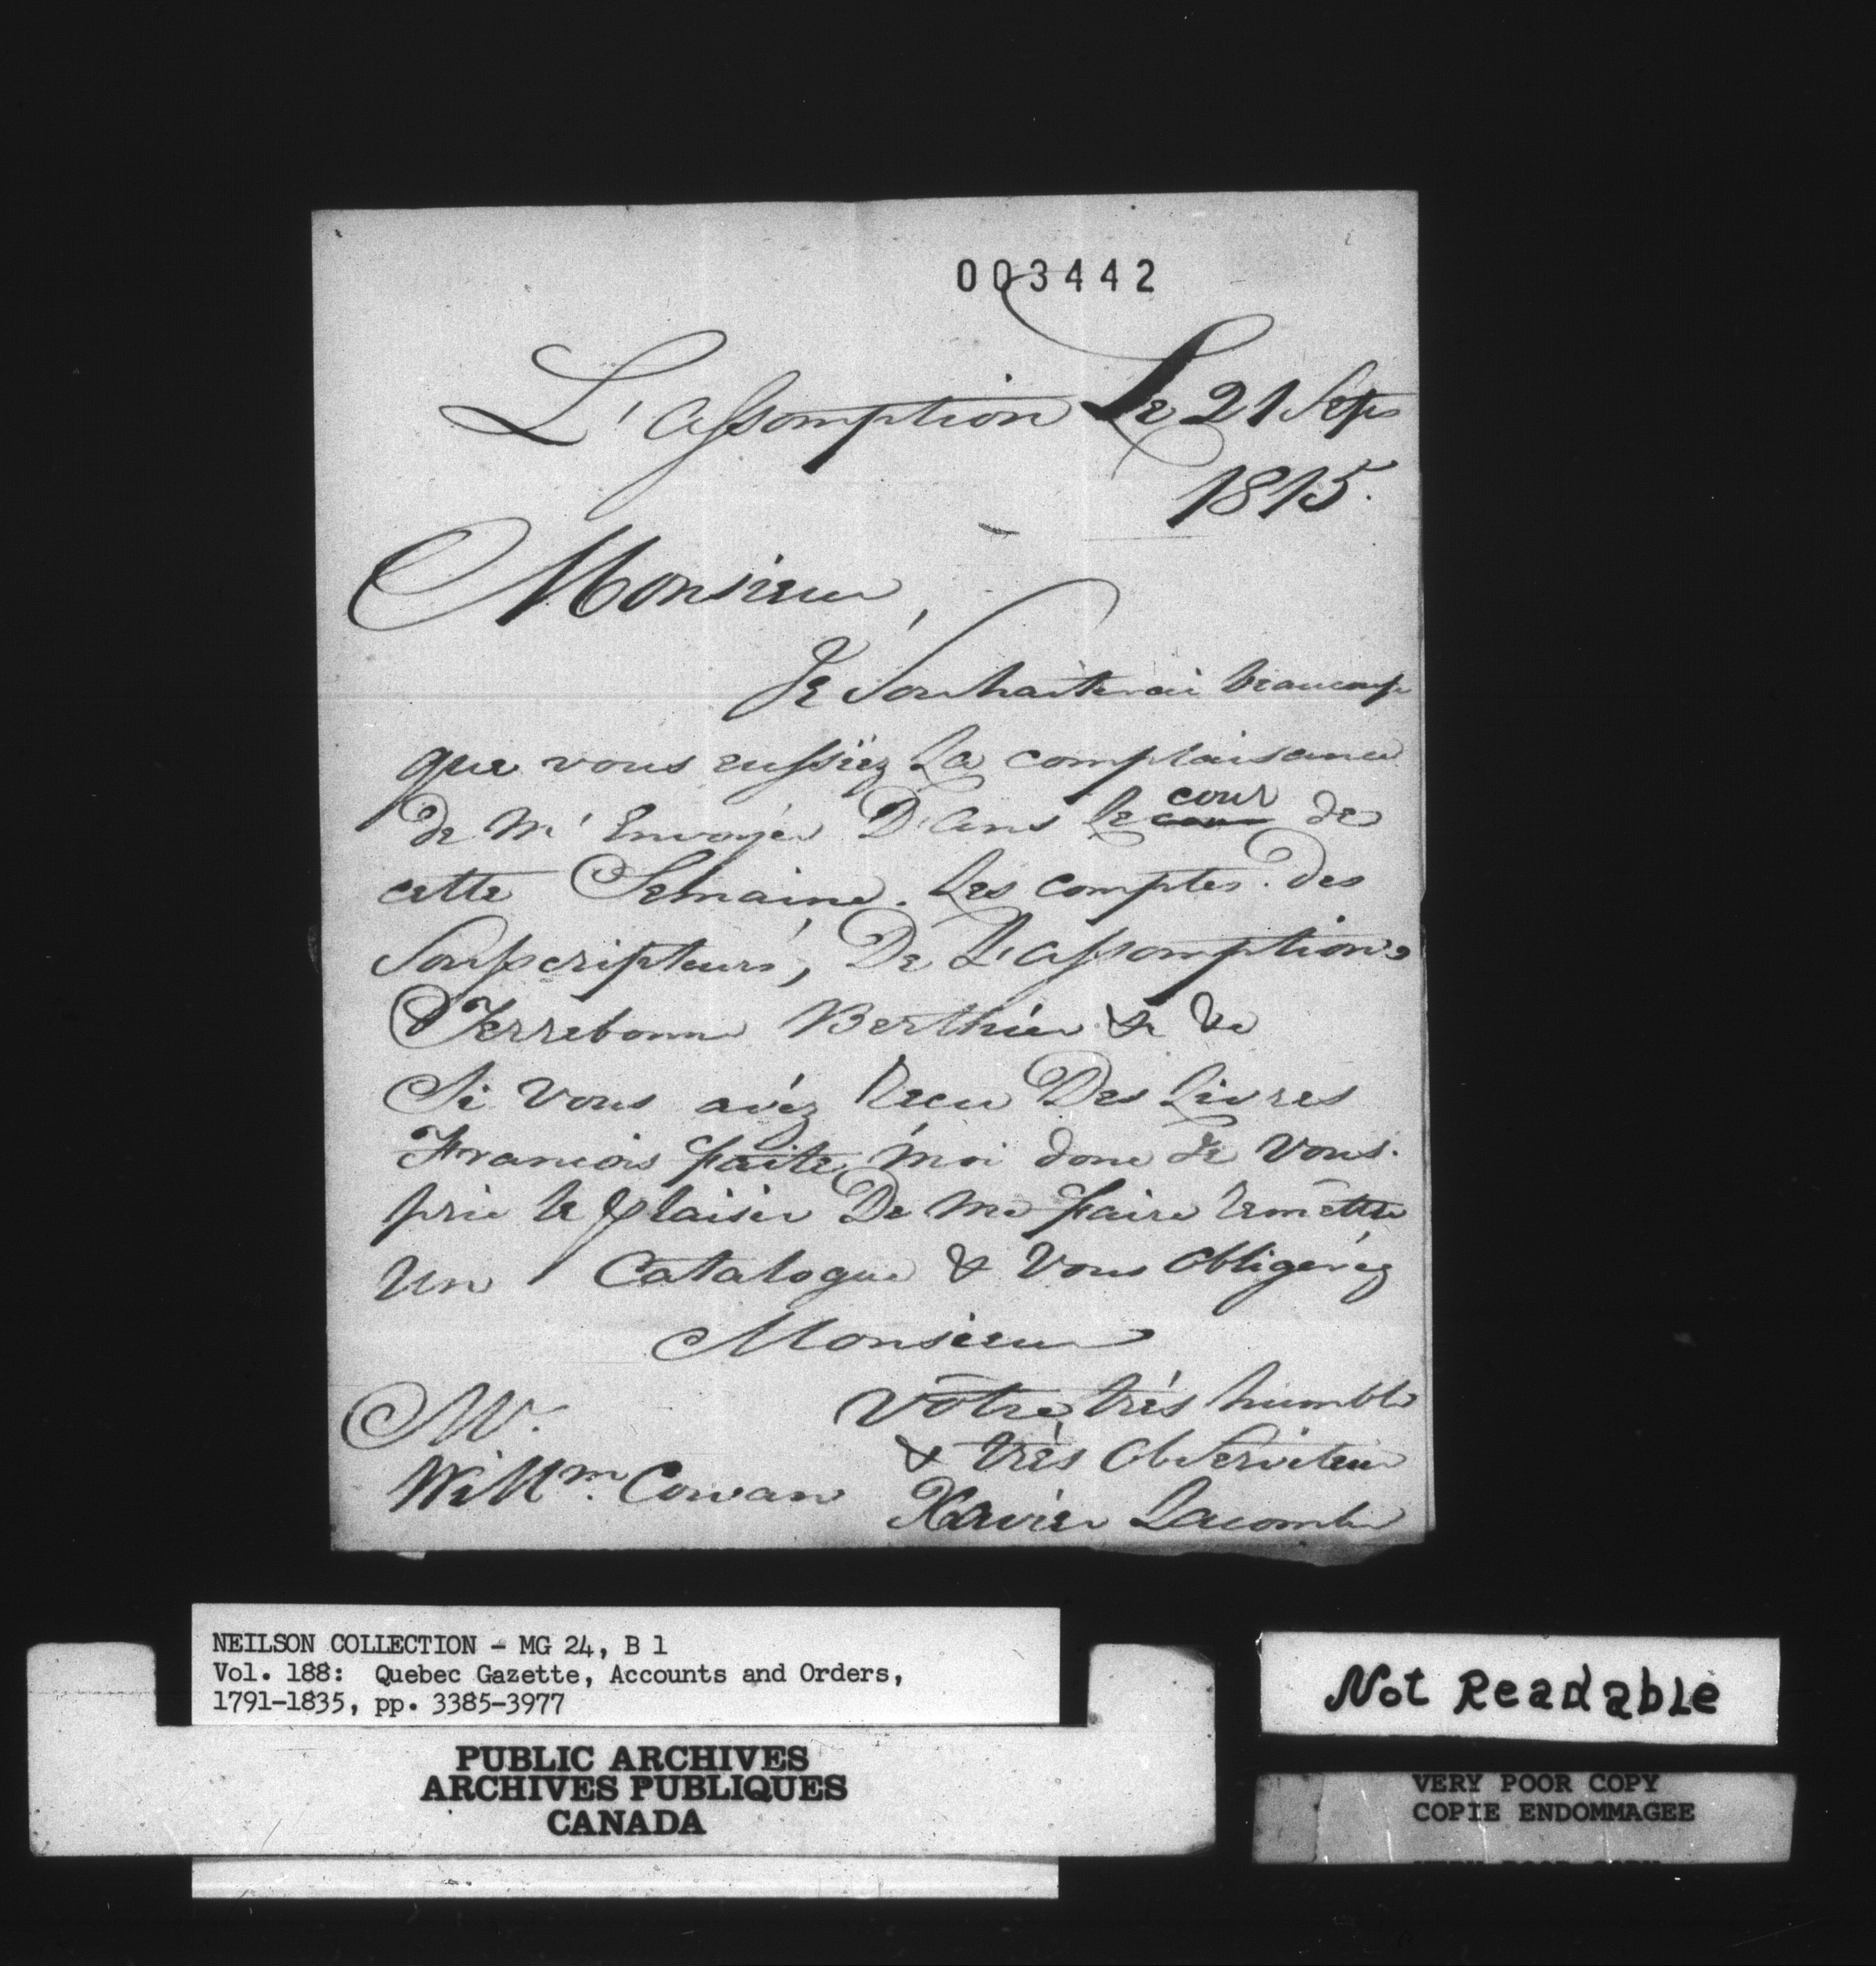 003442
L'assomption Le 21 Sept
1815.
Monsieur,
Je Souhaiterai beaucoup
que vous eussiéz La complaisance
de m'Envoyér D'Ans le cour de
cette Semaine. Les comptes. des
Souscripteurs, De L'assomption,
Terrebonne Berthier &c &c
Si vous avéz Recu Des Livres
Francois faite moi donc Je vous.
prie le plaisir De me faire Remettre
Un Catalogue & Vous Obligeréz
Monsieur
Mr.
Vôtre trés humble
& trés Ob Serviteur
Willm. Cowan
Xavier Lacombe
NEILSON COLLECTION - MG 24, B 1
Vol. 188: Quebec Gazette, Accounts and Orders,
1791-1835, pp. 3385-3977
PUBLIC ARCHIVES
ARCHIVES PUBLIQUES
CANADA
Not Readable
VERY POOR COPY
COPIE ENDOMMAGEE